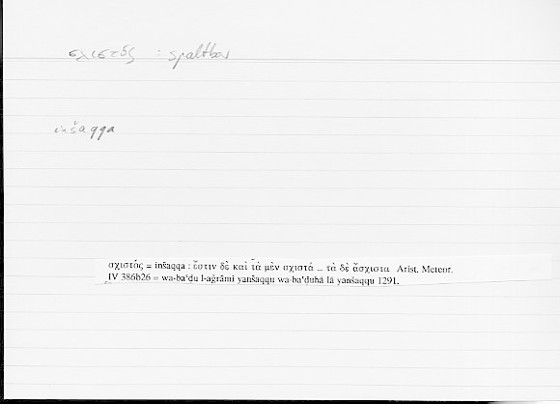 σχιστός : spaltbar
inšaqqa
σχιστός = inšaqqa : ἔστιν δὲ καὶ τὰ μὲν σχιστά ... τὰ δὲ ἄσχιστα Arist. Meteor.
IV 386b26 = wa-baʿḍu l-aǧrāmi yanšaqqu wa-baʿḍuhā lā yanšaqqu 1291.